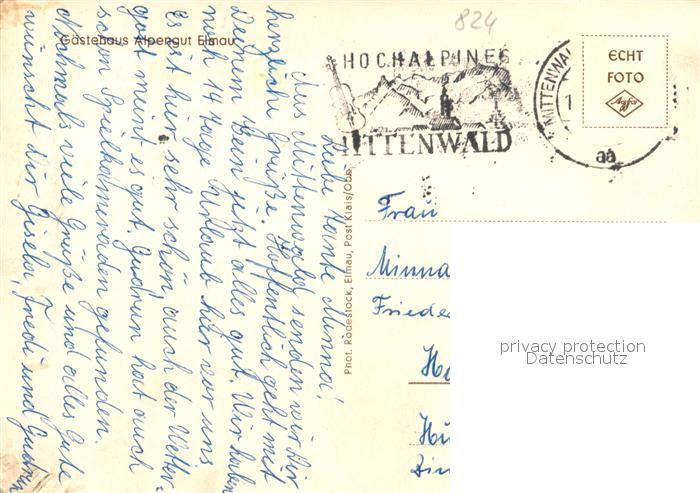 824
Gästehaus Alpengut Elmau
HOCHALPINES
MITTENWALD
MITTENWA
1
aa
ECHT
FOTO
Agfa
Liebe Tante Minna!
Aus Mittenwald senden wir Dir
herzliche Grüße. Hoffentlich geht mit
Deinem Bein jetzt alles gut. Wir haben
noch 14 Tage Urlaub hier vor uns
Es ist hier sehr schön, auch der Wetter-
gott meint es gut. Gudrun hat auch
schon Spielkameraden gefunden.
Nochmals viele Grüße und alles Gute
wünscht Dir Gisela, Fredi und Gudrun
Phot. Rodestock, Elmau, Post Klais/Obb.
Frau
Minna
Friede
Hu
privacy protection
Datenschutz